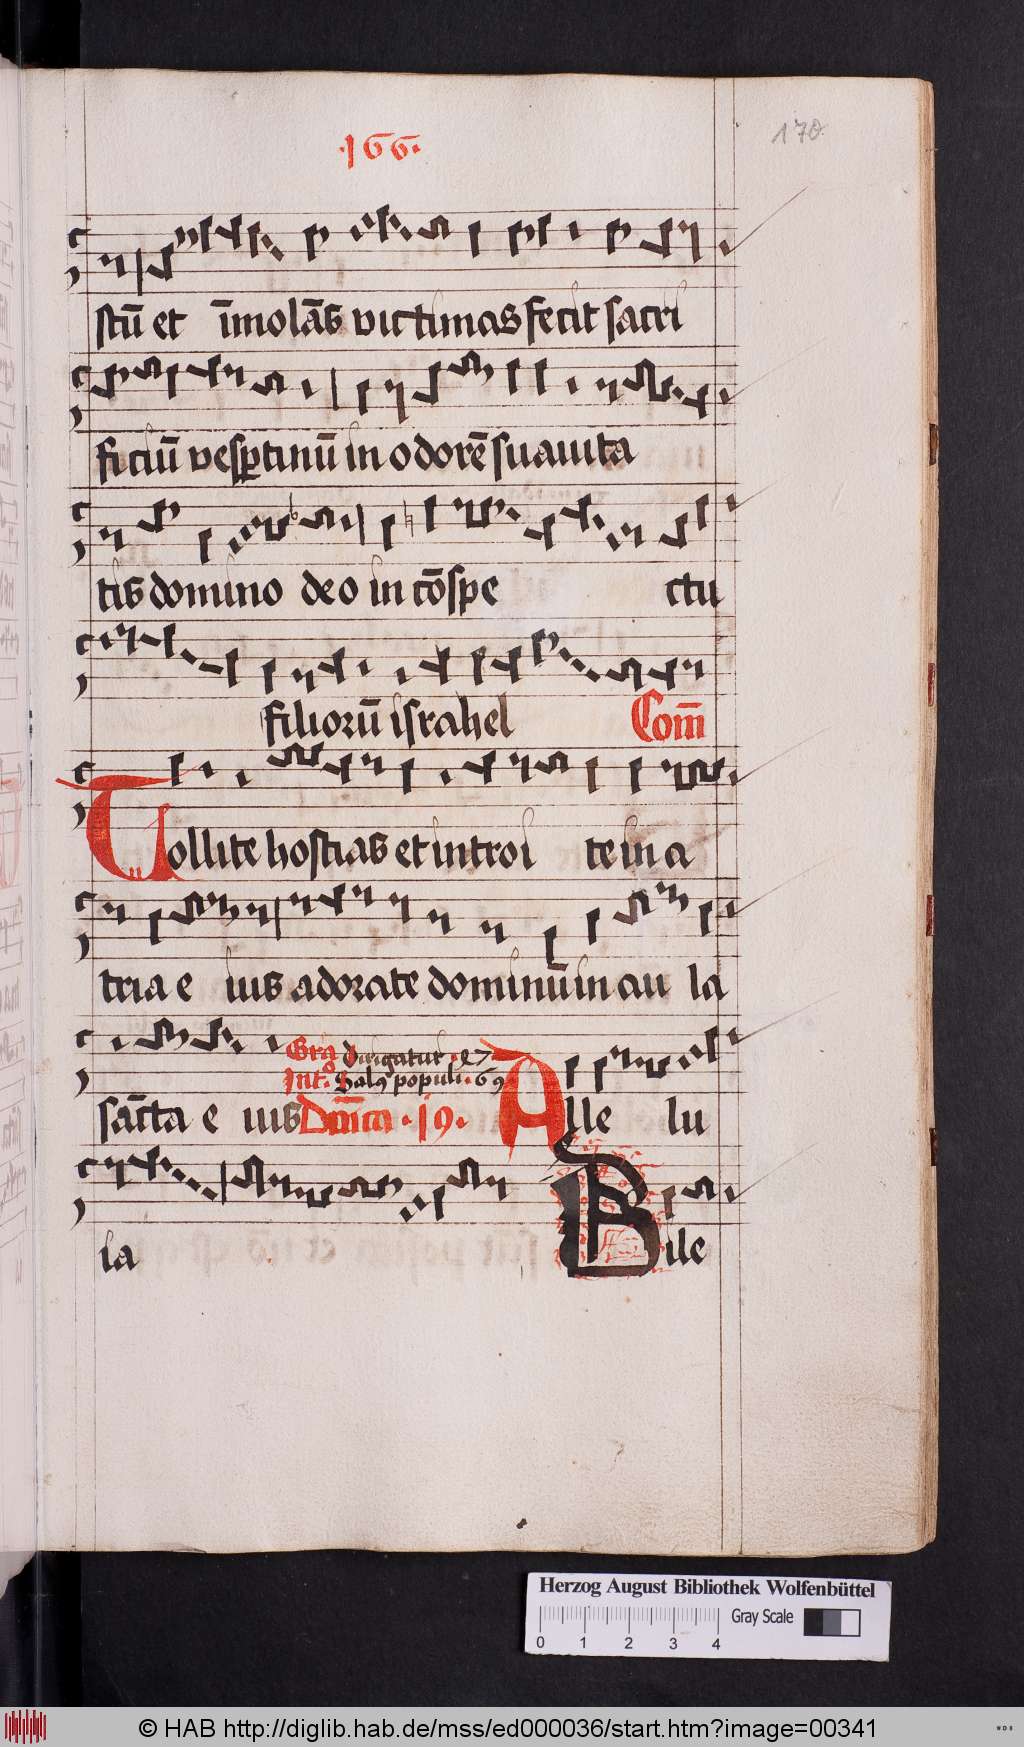 ·166·
170
stū et īmolās victimas fecit sacri
ficiū vesptinū in odorē suauita
tis domino deo in cōspe ctu
filiorū israhel Com̄
Tollite hostias et introi te in a
tria e ius adorate dominū in au la
Gra dirigatur ·27
Int.o Salꝯ populi · 69
sācta e ius Dn̄ica ·19· Alle lu
la Bile
Herzog August Bibliothek Wolfenbüttel
Gray Scale
0 1 2 3 4
© HAB http://diglib.hab.de/mss/ed000036/start.htm?image=00341